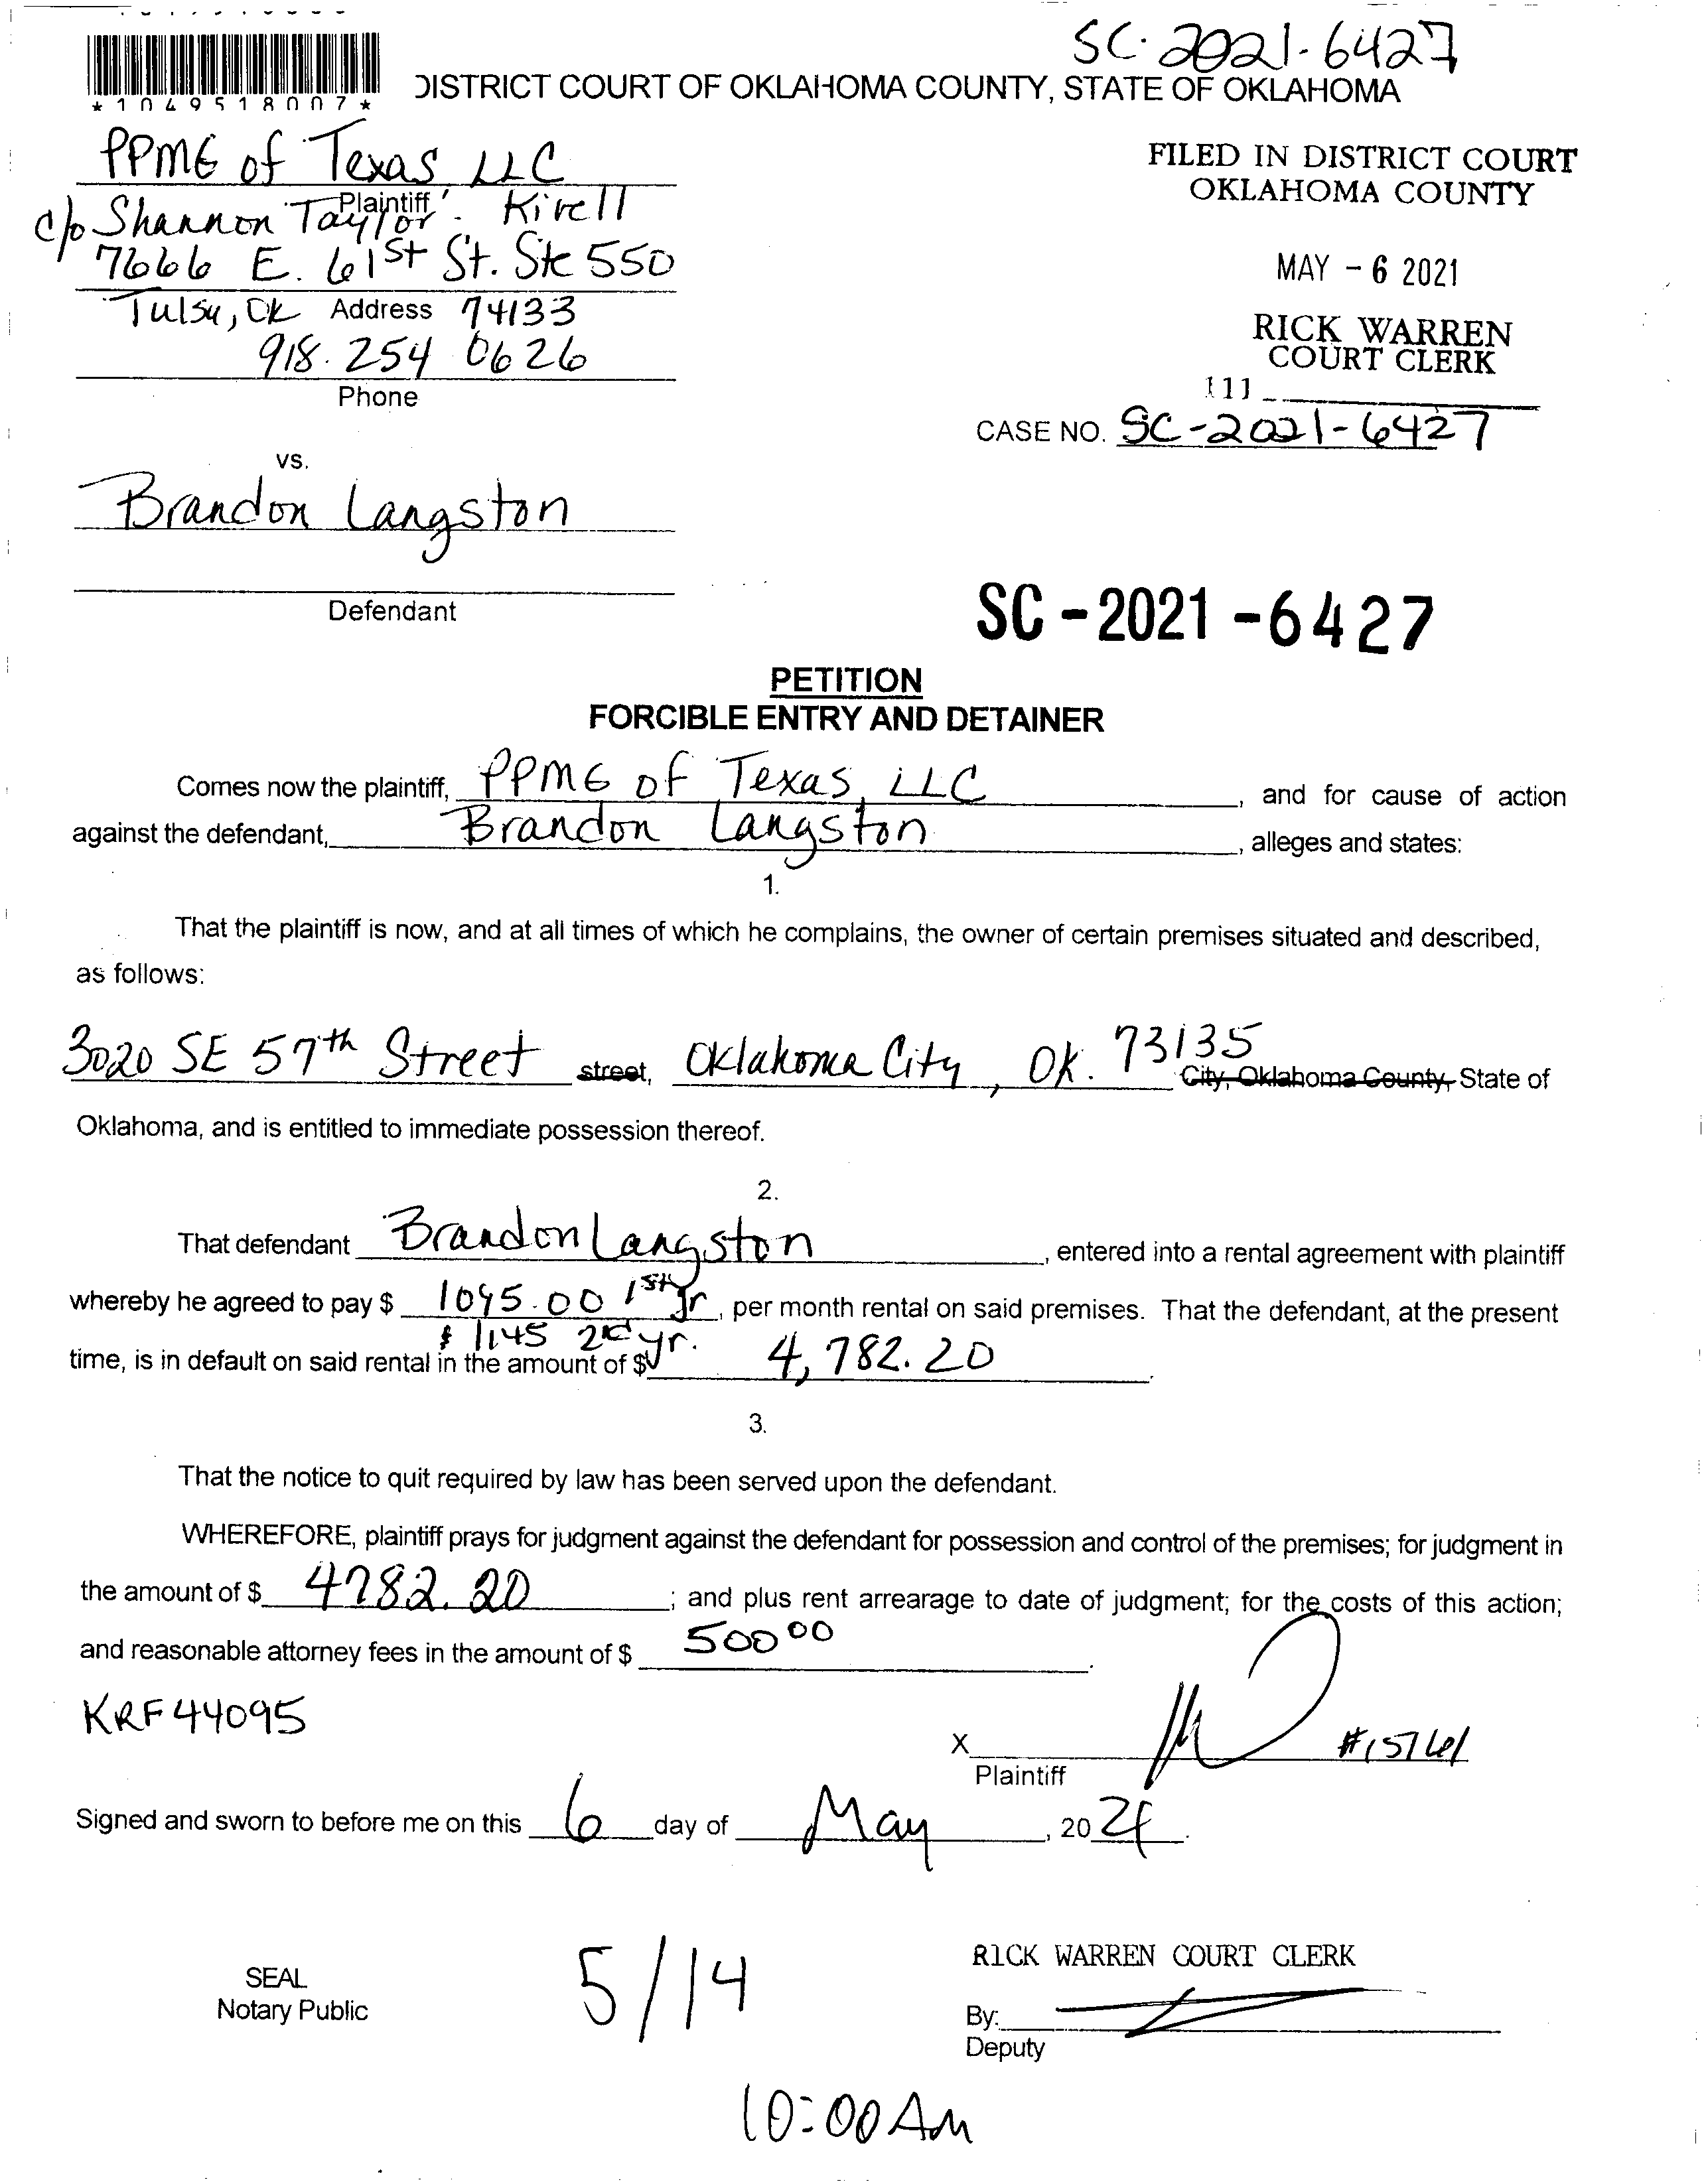 SC-2021-6427
*1049518007*
DISTRICT COURT OF OKLAHOMA COUNTY, STATE OF OKLAHOMA
PPMG of Texas, LLC
Plaintiff
c/o Shannon Taylor Kirell
7666 E. 61st St. Ste 550
Tulsa, Ok Address 74133
918. 254 0626
Phone
FILED IN DISTRICT COURT
OKLAHOMA COUNTY
MAY - 6 2021
RICK WARREN
COURT CLERK
111
CASE NO. SC-2021-6427
vs.
Brandon Langston
Defendant
SC-2021-6427
PETITION
FORCIBLE ENTRY AND DETAINER
Comes now the plaintiff, PPMG of Texas, LLC, and for cause of action
against the defendant, Brandon Langston, alleges and states:
1.
That the plaintiff is now, and at all times of which he complains, the owner of certain premises situated and described,
as follows:
3020 SE 57th Street street, Oklahoma City, Ok. 73135 City, Oklahoma County, State of
Oklahoma, and is entitled to immediate possession thereof.
2.
That defendant Brandon Langston, entered into a rental agreement with plaintiff
whereby he agreed to pay $ 1095.00 1st yr, per month rental on said premises. That the defendant, at the present
$ 1145 2nd yr.
time, is in default on said rental in the amount of $ 4,782.20.
3.
That the notice to quit required by law has been served upon the defendant.
WHEREFORE, plaintiff prays for judgment against the defendant for possession and control of the premises; for judgment in
the amount of $ 4782.20; and plus rent arrearage to date of judgment; for the costs of this action;
and reasonable attorney fees in the amount of $ 500 00.
KRF44095
X #15761
Plaintiff
Signed and sworn to before me on this 6 day of May, 2021.
SEAL
Notary Public
5/14
RICK WARREN COURT CLERK
By:
Deputy
10:00 AM